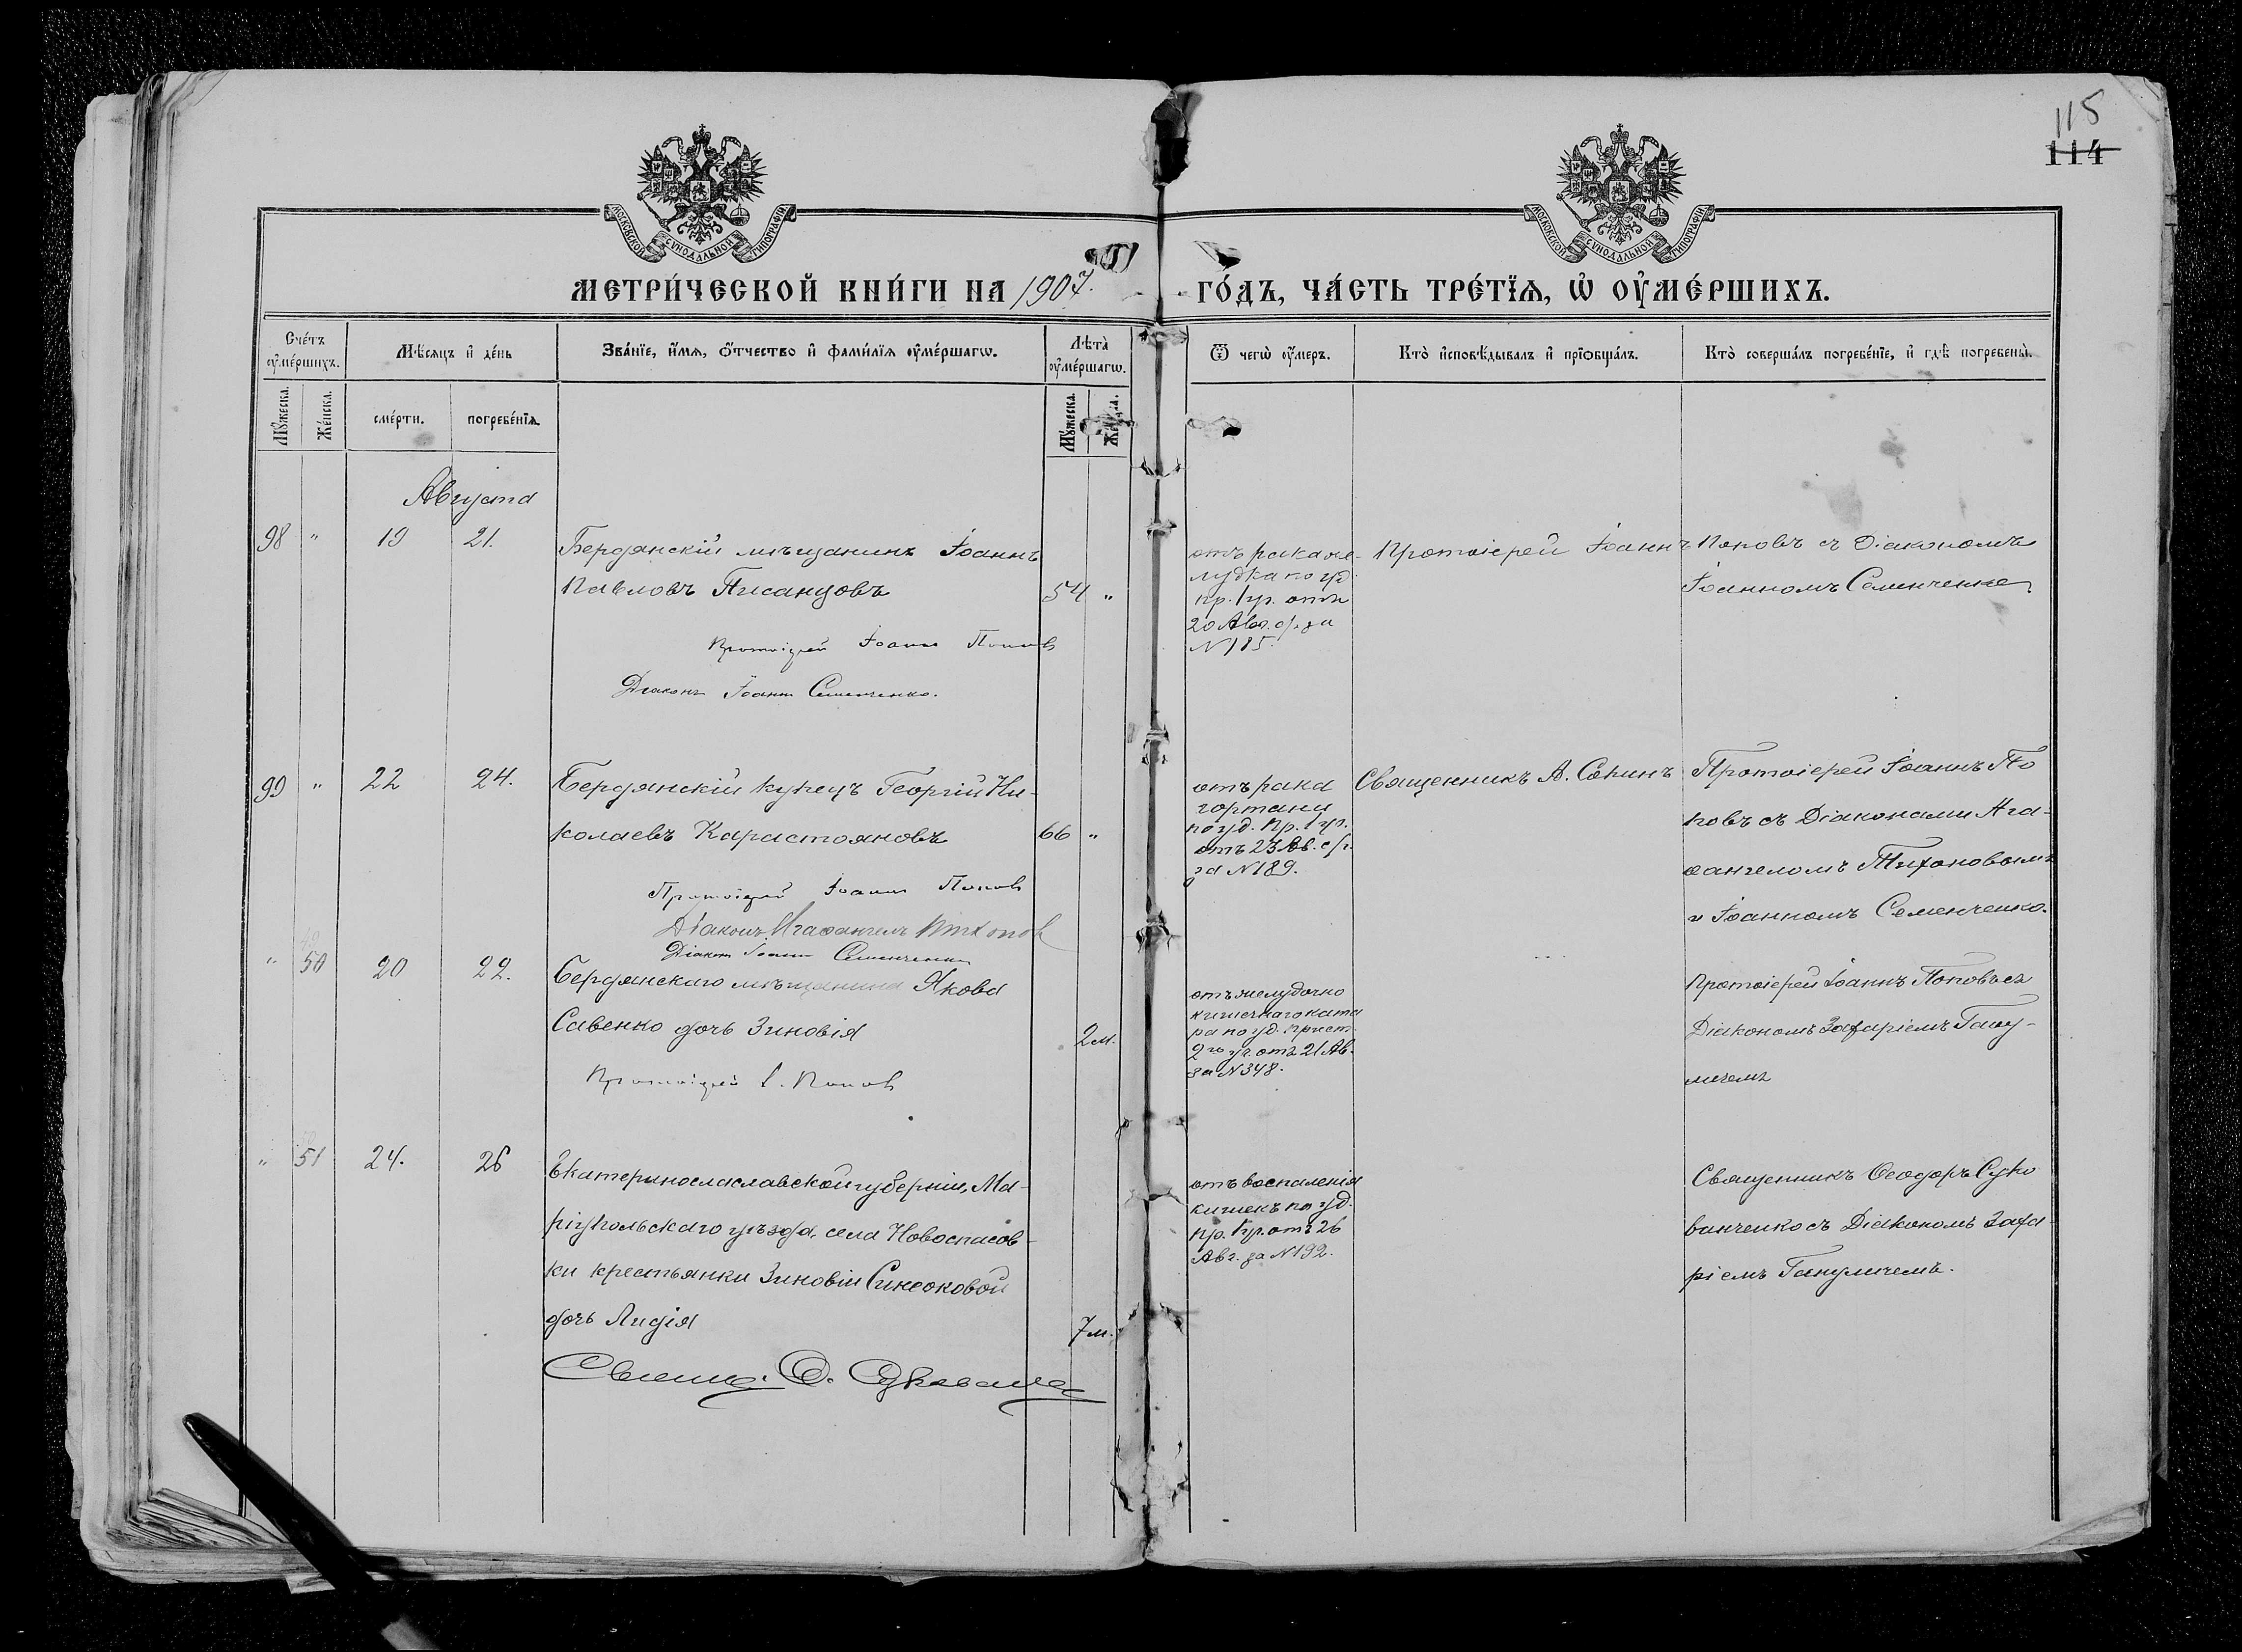 115
114
МОСКОВСКОЙ СѴНОДАЛЬНОЙ ТИПОГРАФІИ
МОСКОВСКОЙ СѴНОДАЛЬНОЙ ТИПОГРАФІИ
МЕТРИ́ЧЕСКОЙ КНИ́ГИ НА 1907. ГО́ДЪ, ЧА́СТЬ ТРЕ́ТЇѦ, Ѡ҆ ОУ҆МЕ́РШИХЪ.
Сче́тъ оу҆ме́ршихъ.
Мѣ́сяцъ и҆ де́нь
Зва́нїе, и҆́мѧ, ѻ҆́тчество и҆ фами́лїѧ оу҆ме́ршагѡ.
Лѣ́та оу҆ме́ршагѡ.
Ѿ чегѡ̀ оу҆́меръ.
Кто̀ и҆сповѣ́дывалъ и҆ прїѻбща́лъ.
Кто̀ соверша́лъ погребе́нїе, и҆ гдѣ̀ погребены̀.
Мꙋ́жеска.
Же́нска.
сме́рти.
погребе́нїѧ.
Мꙋ́жеска.
Августа
98 " 19 21.
Бердянскій мѣщанинъ Іоаннъ
Павловъ Писанцовъ 54 "
Протоіерей Іоаннъ Поповъ
Діаконъ Іоаннъ Семенченко.
отъ рака же-
лудка по уд.
пр. 1 уч. отъ
20 Авг. с/г. за
N 185.
Протоіерей Іоаннъ Поповъ съ Діакономъ
Іоанномъ Семенченко
99 " 22 24.
Бердянскій купецъ Георгій Ни-
колаевъ Карастояновъ 66 "
Протоіерей Іоаннъ Поповъ
Діаконъ Агаѳангелъ Тихоновъ
Діаконъ Іоаннъ Семенченко
отъ рака
гортани
по уд. пр. 1 уч.
отъ 23 Ав. с/г.
за N 189.
Священникъ А. Сапинъ
Протоіерей Іоаннъ По
повъ съ Діаконами Ага-
ѳангеломъ Тихоновымъ
и Іоанномъ Семенченко.
" 50 20 22.
Бердянскаго мѣщанина Якова
Савенко дочь Зиновія 2 м.
Протоіерей І. Поповъ
отъ желудочно
кишечнаго ката
ра по уд. прист.
2го уч. отъ 21 Ав.
за N 348.
Протоіерей Іоаннъ Поповъ съ
Діакономъ Захаріемъ Гану-
личемъ
" 51 24. 26
Екатеринослаславской губерніи, Ма-
ріупольскаго уѣзда, села Новоспасов-
ки крестьянки Зиновіи Синеоковой
дочь Лидія 7 м.
Священ. Ѳ. Сукованченко
отъ воспаленія
кишекъ по уд.
пр. 1 уч. отъ 26
Авг. за N 192.
Священникъ Ѳеодоръ Суко
ванченко съ Діакономъ Заха-
ріемъ Гануличемъ.